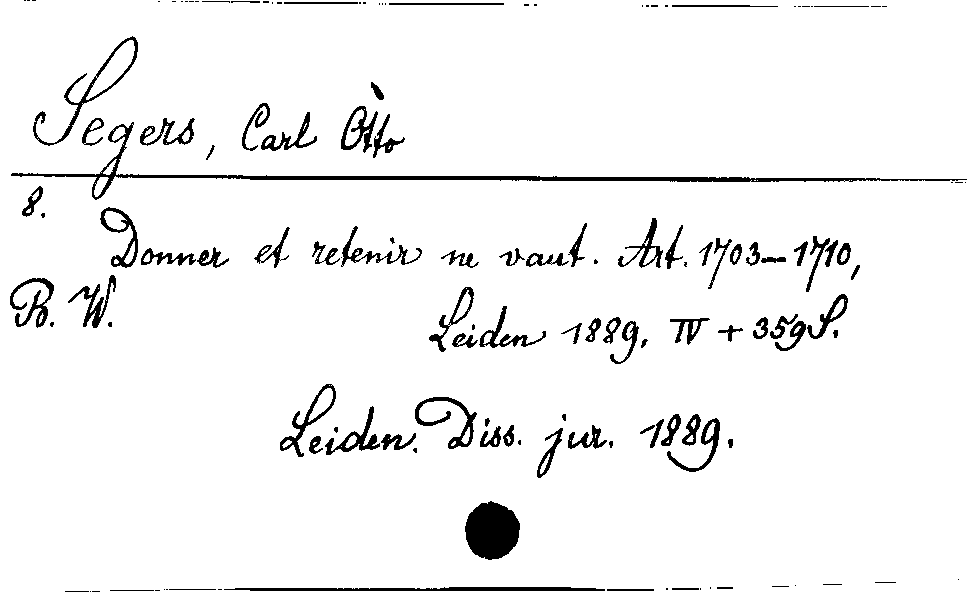 Segers, Carl Otto
8.
Donner et retenir ne vaut. Art. 1703-1710,
B. W.
Leiden 1889. IV + 359 S.
Leiden. Diss. jur. 1889.